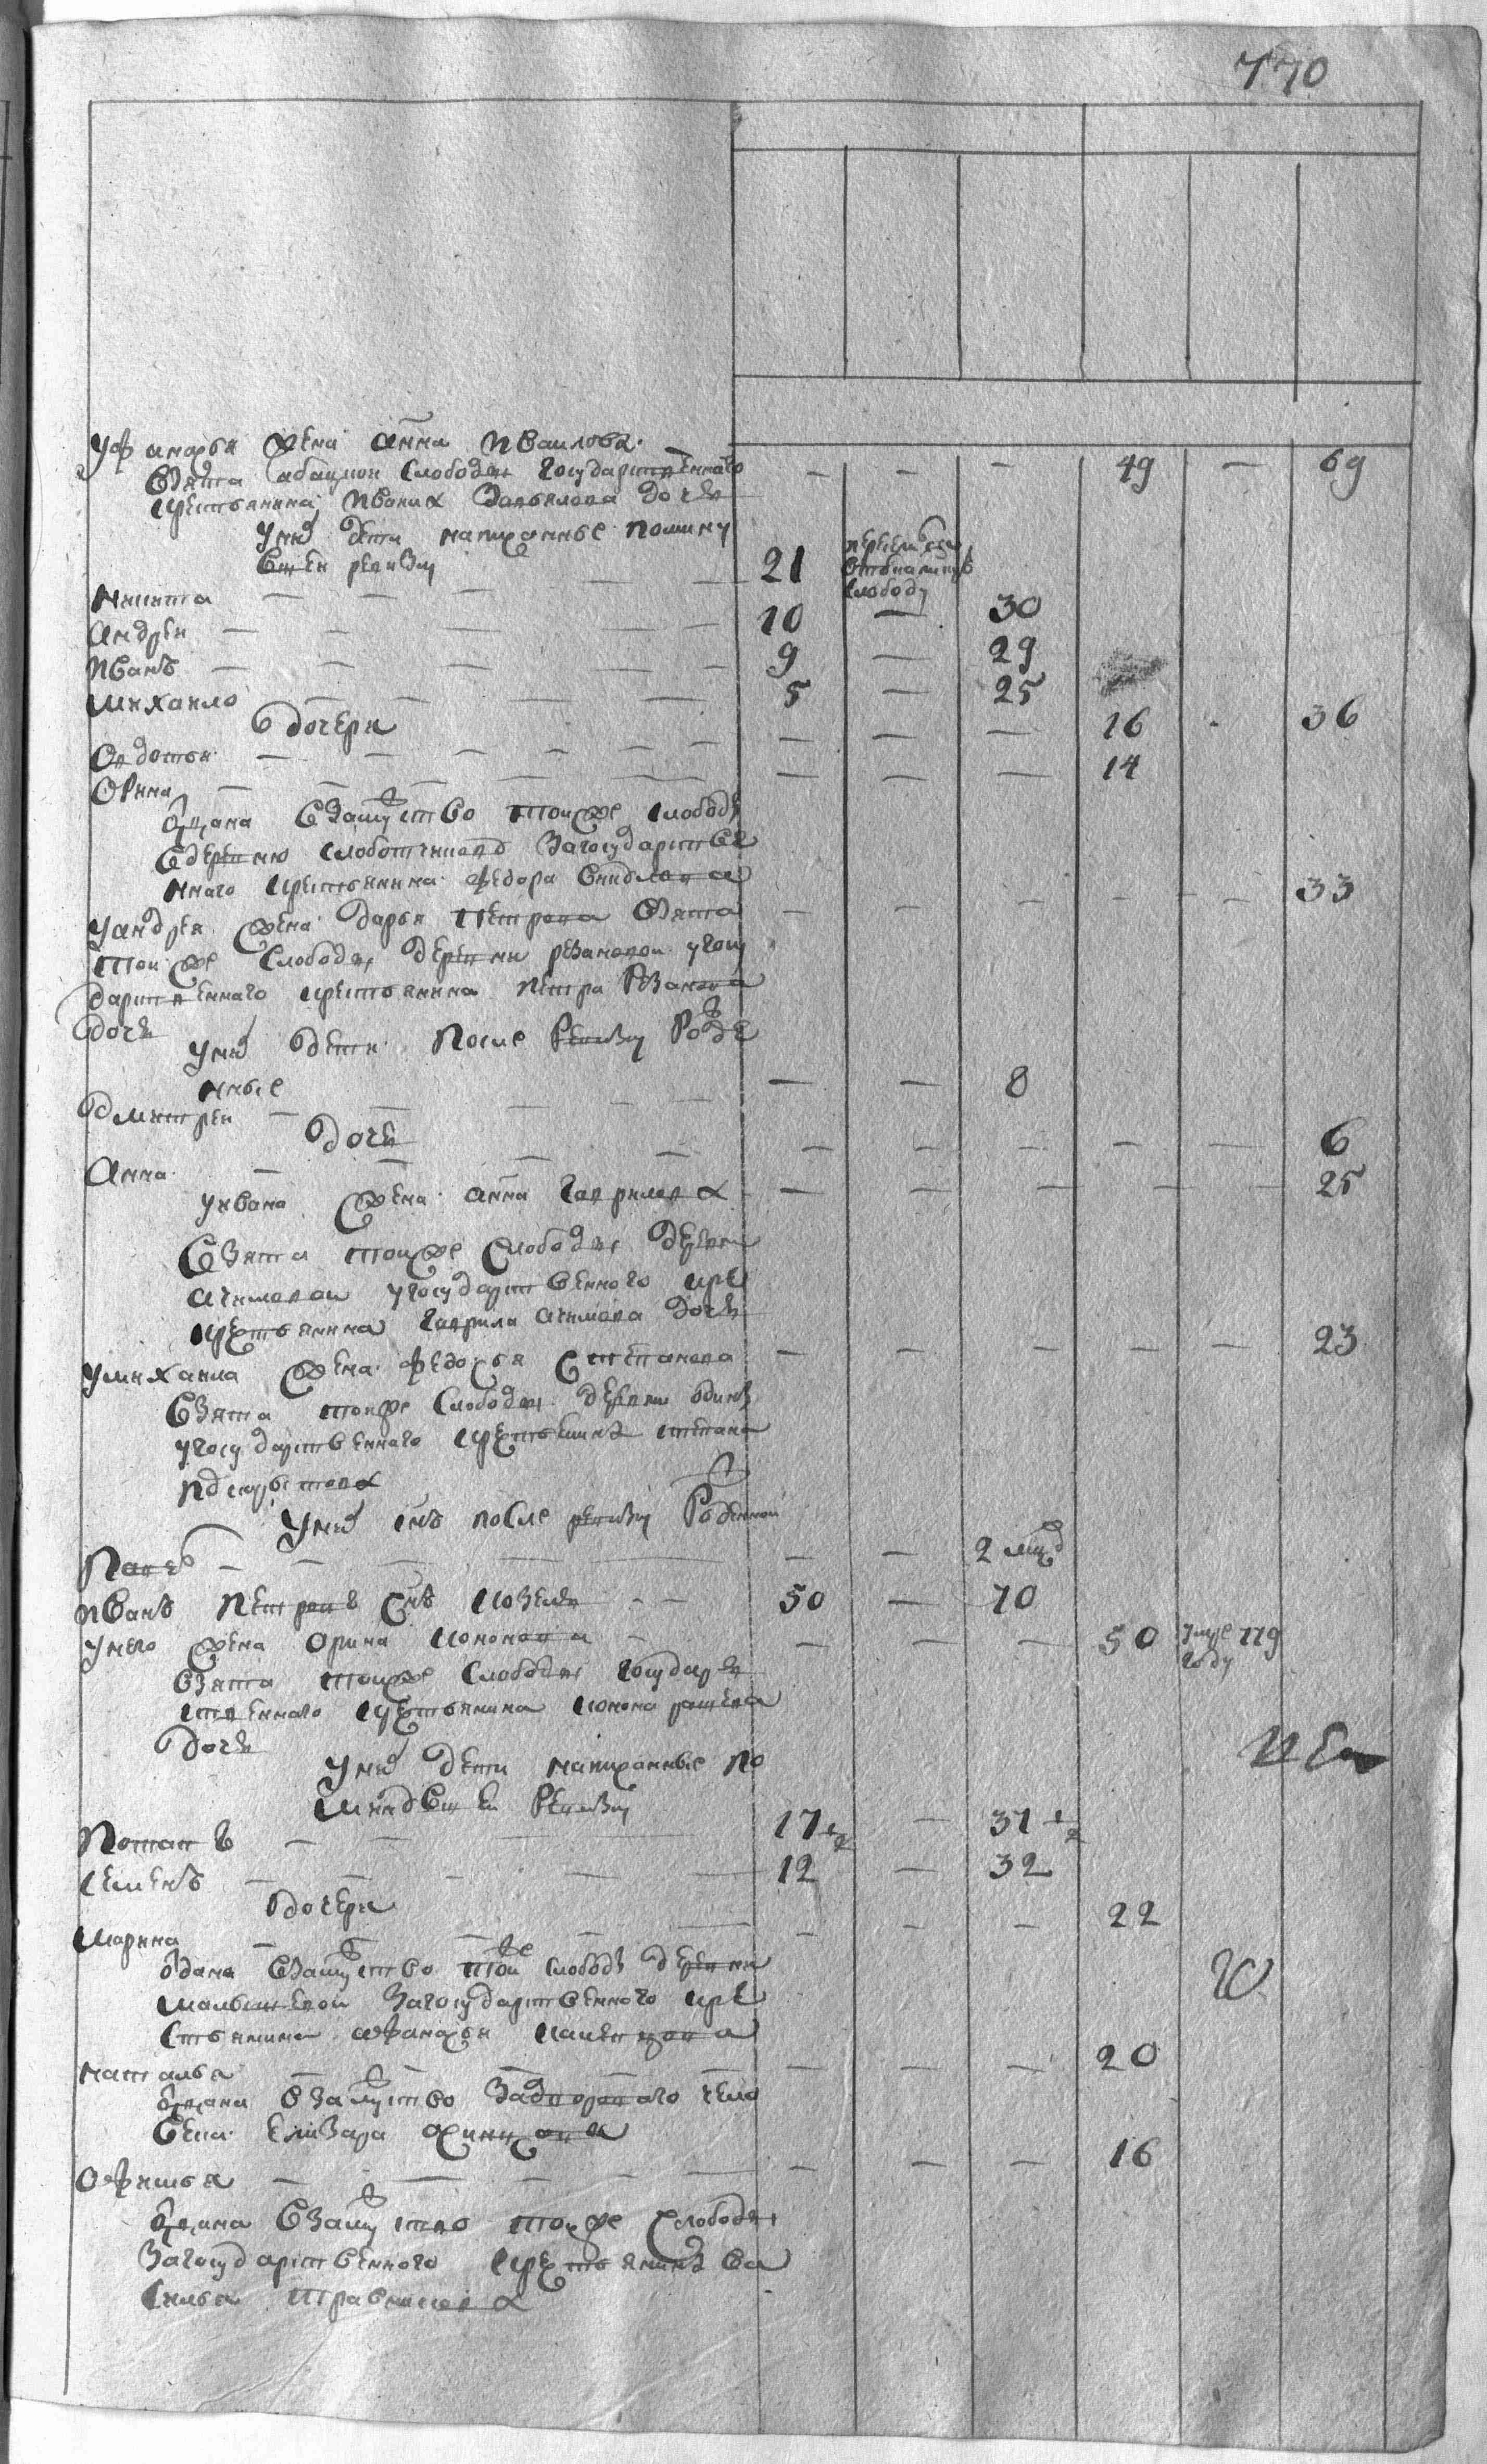 770
У афанасья жена анна Иваилова
взята абацкой слободы государственнаго
крестьянина Ивана Завьялова дочь
У них дети написанные по минув
шей ревизи
21
49 69
Никита
слободу
Андрей 10 30
Иванъ 9 29
Михаило 5 25
дочери
Овдотья 16 36
Орина 14
одана взамуство тоиже слободы
в деревню слоботчикову за государстве
ннаго крестьянина федора
У андрея жена дарья петрова взята 33
тоиже слободы деревни резановои у госу
дарственнаго крестьянина петра Резанова
дочь
У них дети после Ревизи Рожде
нные
Дмитрей 8
дочь
Анна 6
У ивана жена анна гаврилова 25
взята тоиже слободы деревни
ачимовои у государственного кре
крестьянина гаврила ачимова дочь
У михаила жена федосья степанова 23
взята тоиже слободы деревни
у государственнаго крестьянина степана
У них снъ после ревизи Рожденной
Павел 2 мцд
Иванъ Петровъ снъ 50 70
У него жена орина кононова 50 умре 779 году
взята тоиже слободы государ
ственнаго крестьянина конона рощева
дочь
У них дети написанные по
минувшеи Ревизи
Потапъ 17 1/2 37 1/2
Семенъ 12 32
дочери
Марина 22
одана взамуство тоиже слободы деревни
малышевои за государственного кре
стьянина афанасья
Наталья 20
одана взамуство за дворового чело
века елизара
Офимья 16
одана взамуство тоиже слободы
за государственного крестьянина ва
силья травникова